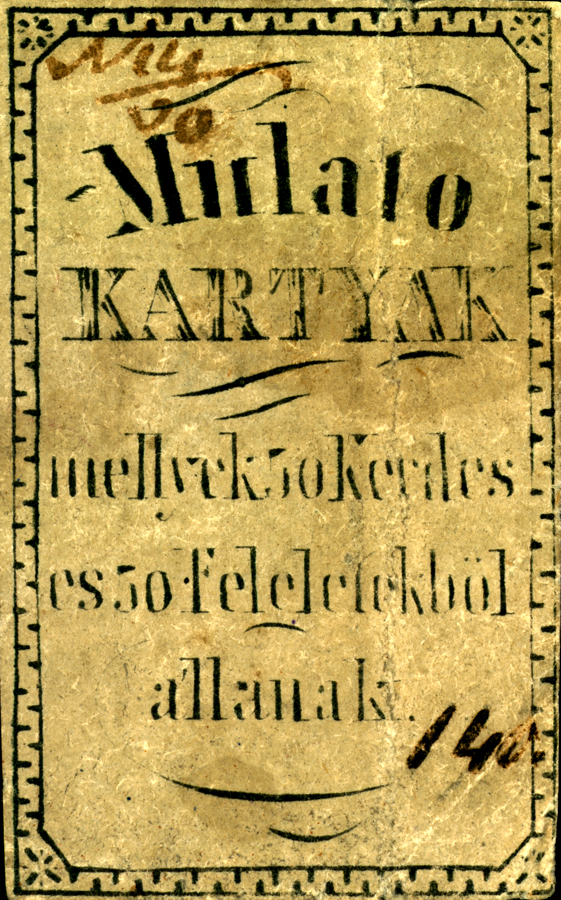 Mulato
KARTYAK
mellyek 50 Kerdes
es 50 Feleletekböl
állanak.
140.